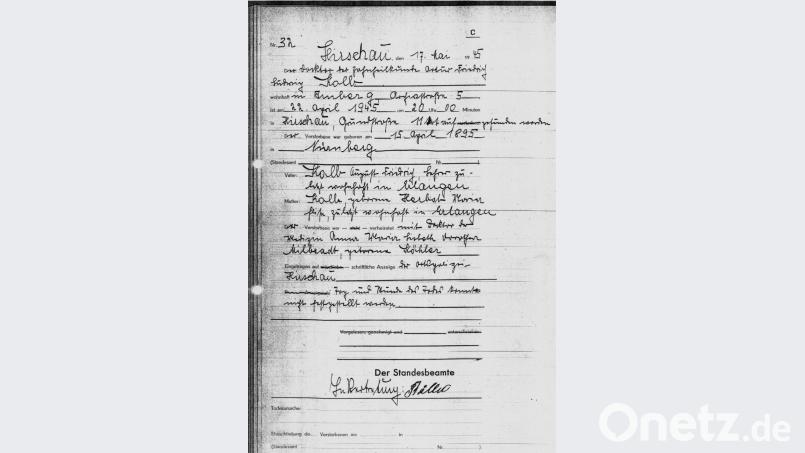 C
Nr. 32
Hirschau, den 17. Mai 1945
Der Doktor der Zahnheilkunde Artur Friedrich
Ludwig Kolb
wohnhaft in Amberg, Archivstraße 5
ist am 22. April 1945 um 20 Uhr 00 Minuten
in Hirschau, Grundstraße tot aufgefunden worden
Der Verstorbene war geboren am 15. April 1895
in Nürnberg
(Standesamt Nr. )
Vater: Kolb August Friedrich, Lehrer zu-
letzt wohnhaft in Erlangen
Mutter: Kolb, geborene Herbst Maria
zuletzt wohnhaft in Erlangen
Der Verstorbene war verheiratet mit Doktor der
Medizin Anna Maria Dorothea
geborene Köhler
Eingetragen auf schriftliche Anzeige der Ortspolizei
Hirschau
Tag und Stunde des Todes konnte
nicht festgestellt werden
Vorgelesen, genehmigt und unterschrieben
Der Standesbeamte
In Vertretung:
Todesursache:
Eheschließung de Verstorbenen am in
(Standesamt Nr. )
Onetz.de